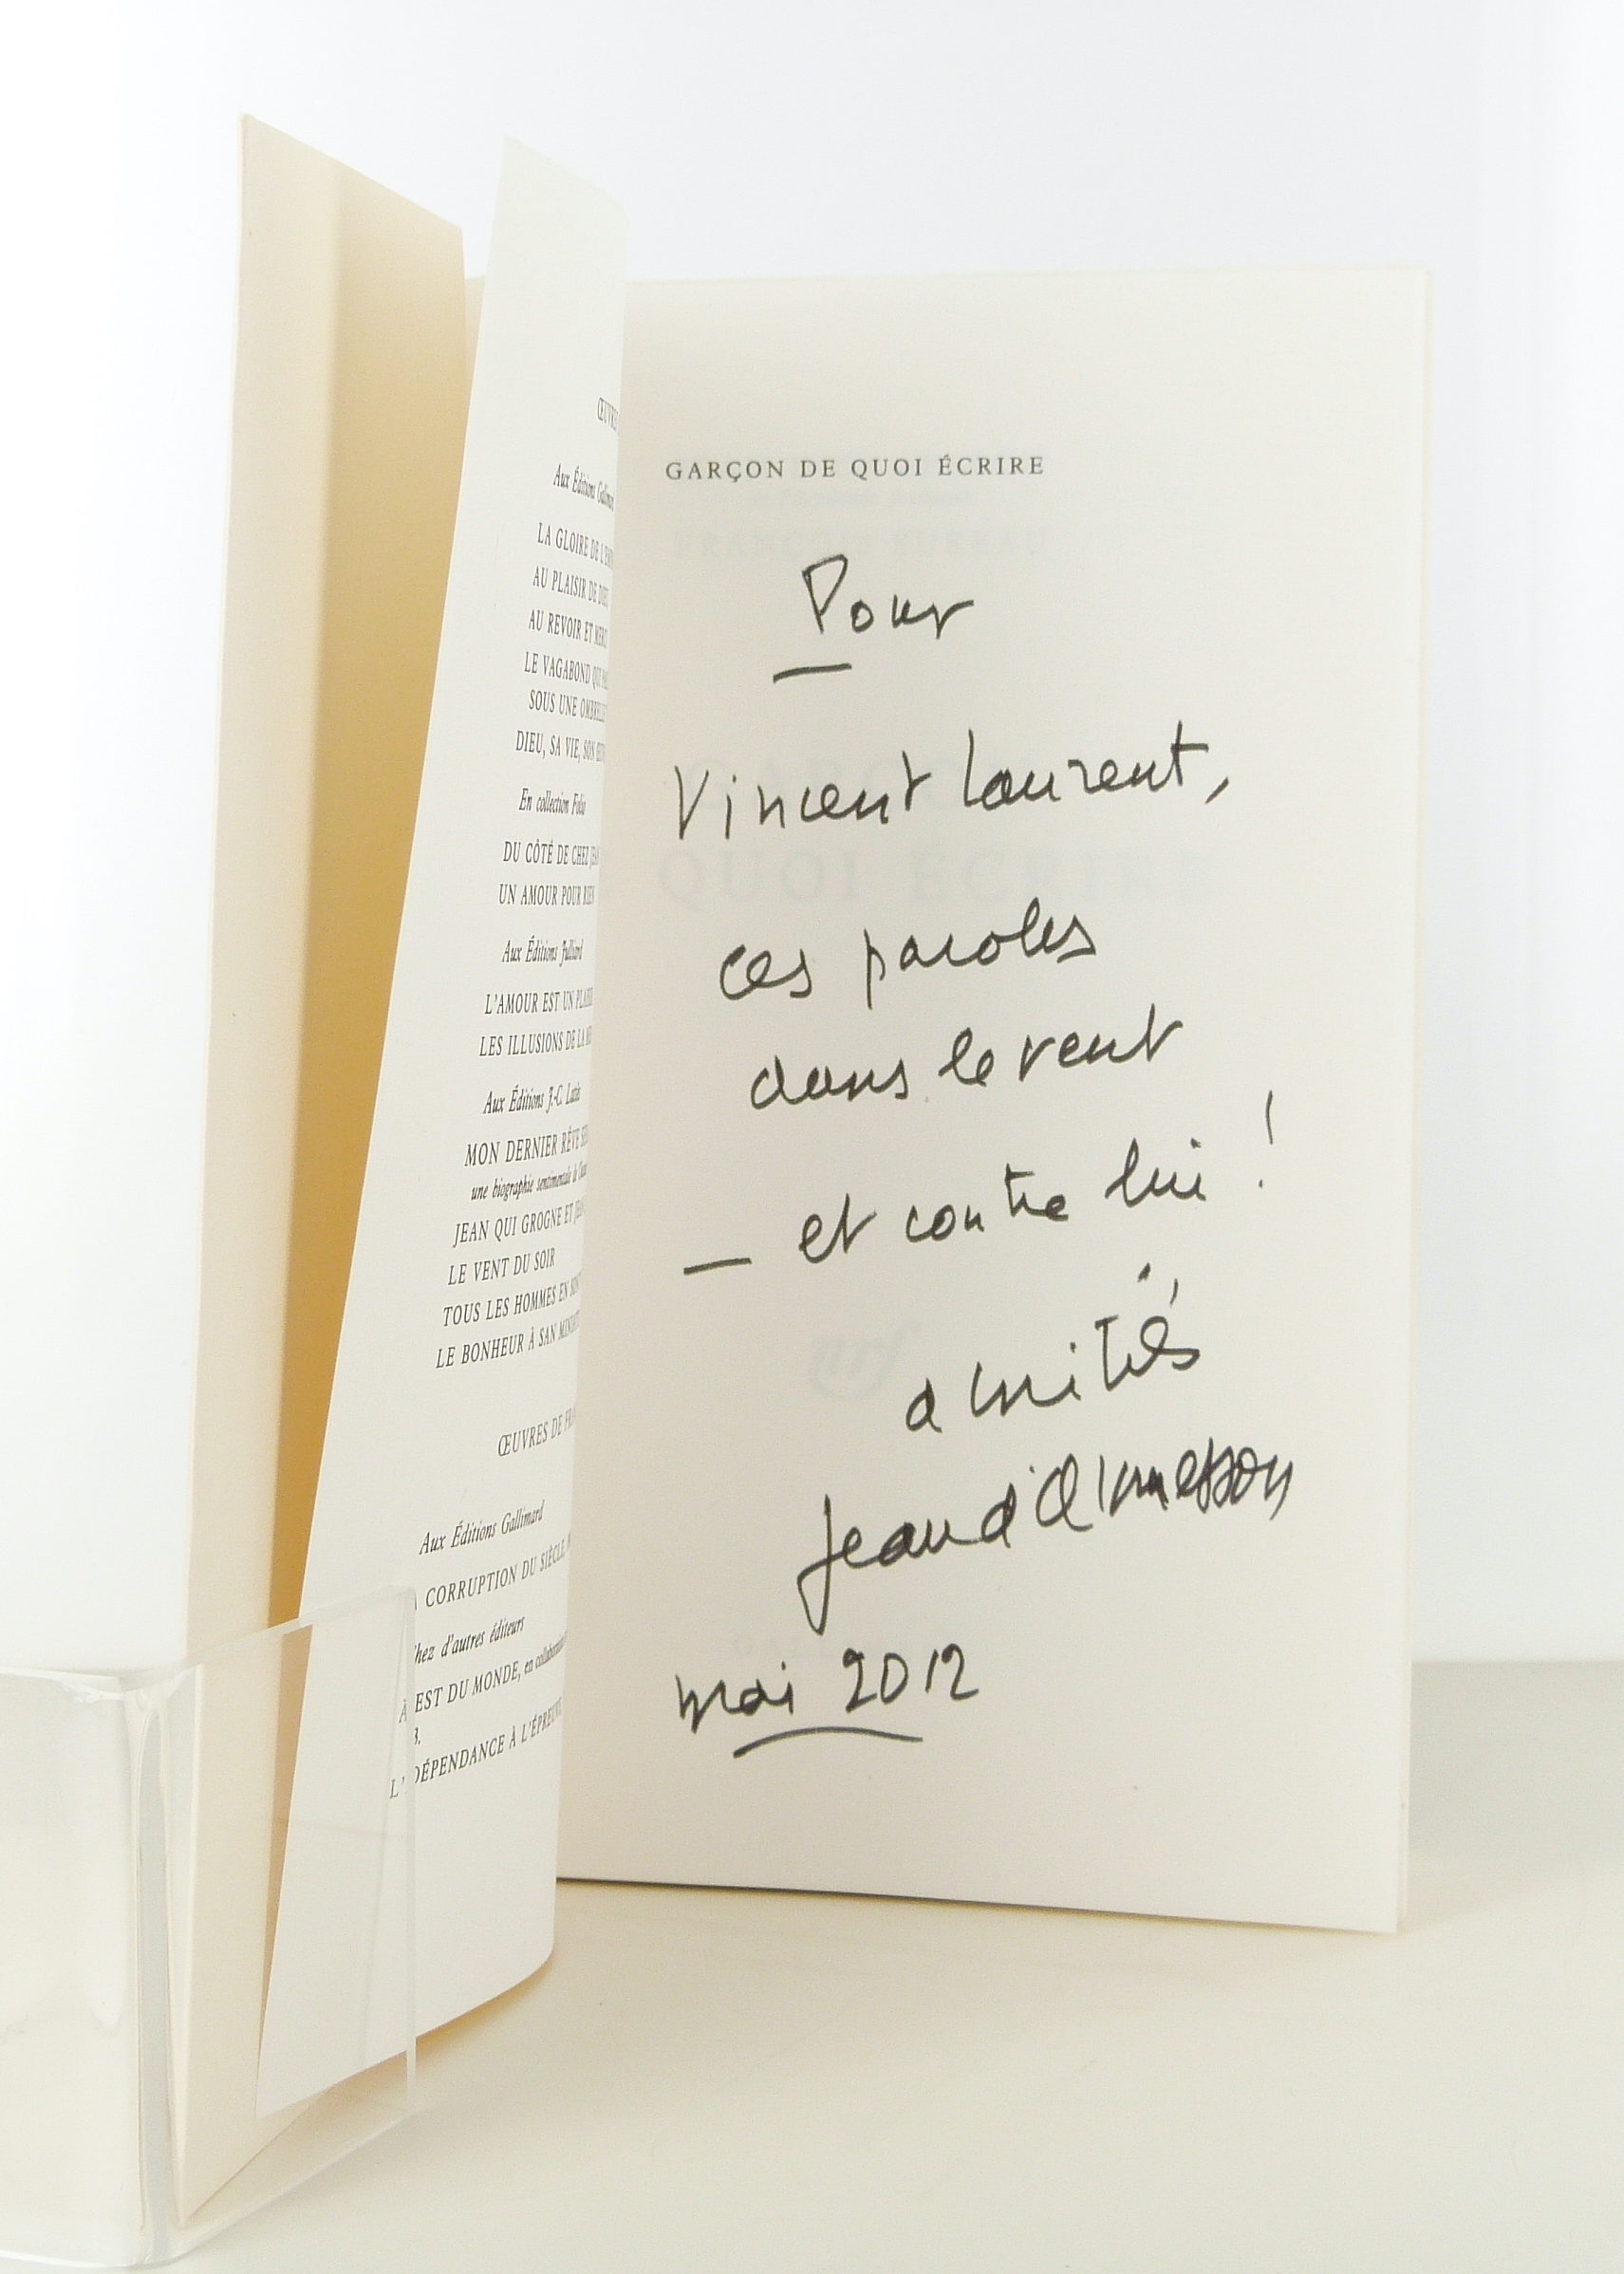 ŒUVRES
Aux Éditions Gallimard
LA GLOIRE DE L'
AU PLAISIR DE DIEU
AU REVOIR ET MERCI
LE VAGABOND QUI
SOUS UNE OMBRELLE
DIEU, SA VIE, SON
En collection Folio
DU CÔTÉ DE CHEZ JEAN
UN AMOUR POUR RIEN
Aux Éditions Julliard
L'AMOUR EST UN PLAISIR
LES ILLUSIONS DE LA
Aux Éditions J.-C. Lattès
MON DERNIER RÊVE
une biographie sentimentale de
JEAN QUI GROGNE ET
LE VENT DU SOIR
TOUS LES HOMMES EN SONT
LE BONHEUR À SAN MINIATO
ŒUVRES DE
Aux Éditions Gallimard
CORRUPTION DU SIÈCLE
hez d'autres éditeurs
À EST DU MONDE, en collaboration
3.
L' DÉPENDANCE À L'ÉPREUVE
GARÇON DE QUOI ÉCRIRE
Pour
Vincent Laurent,
ces paroles
dans le vent
— et contre lui !
amitiés
Jean d'Ormesson
mai 2012
QUOI ÉCRIRE